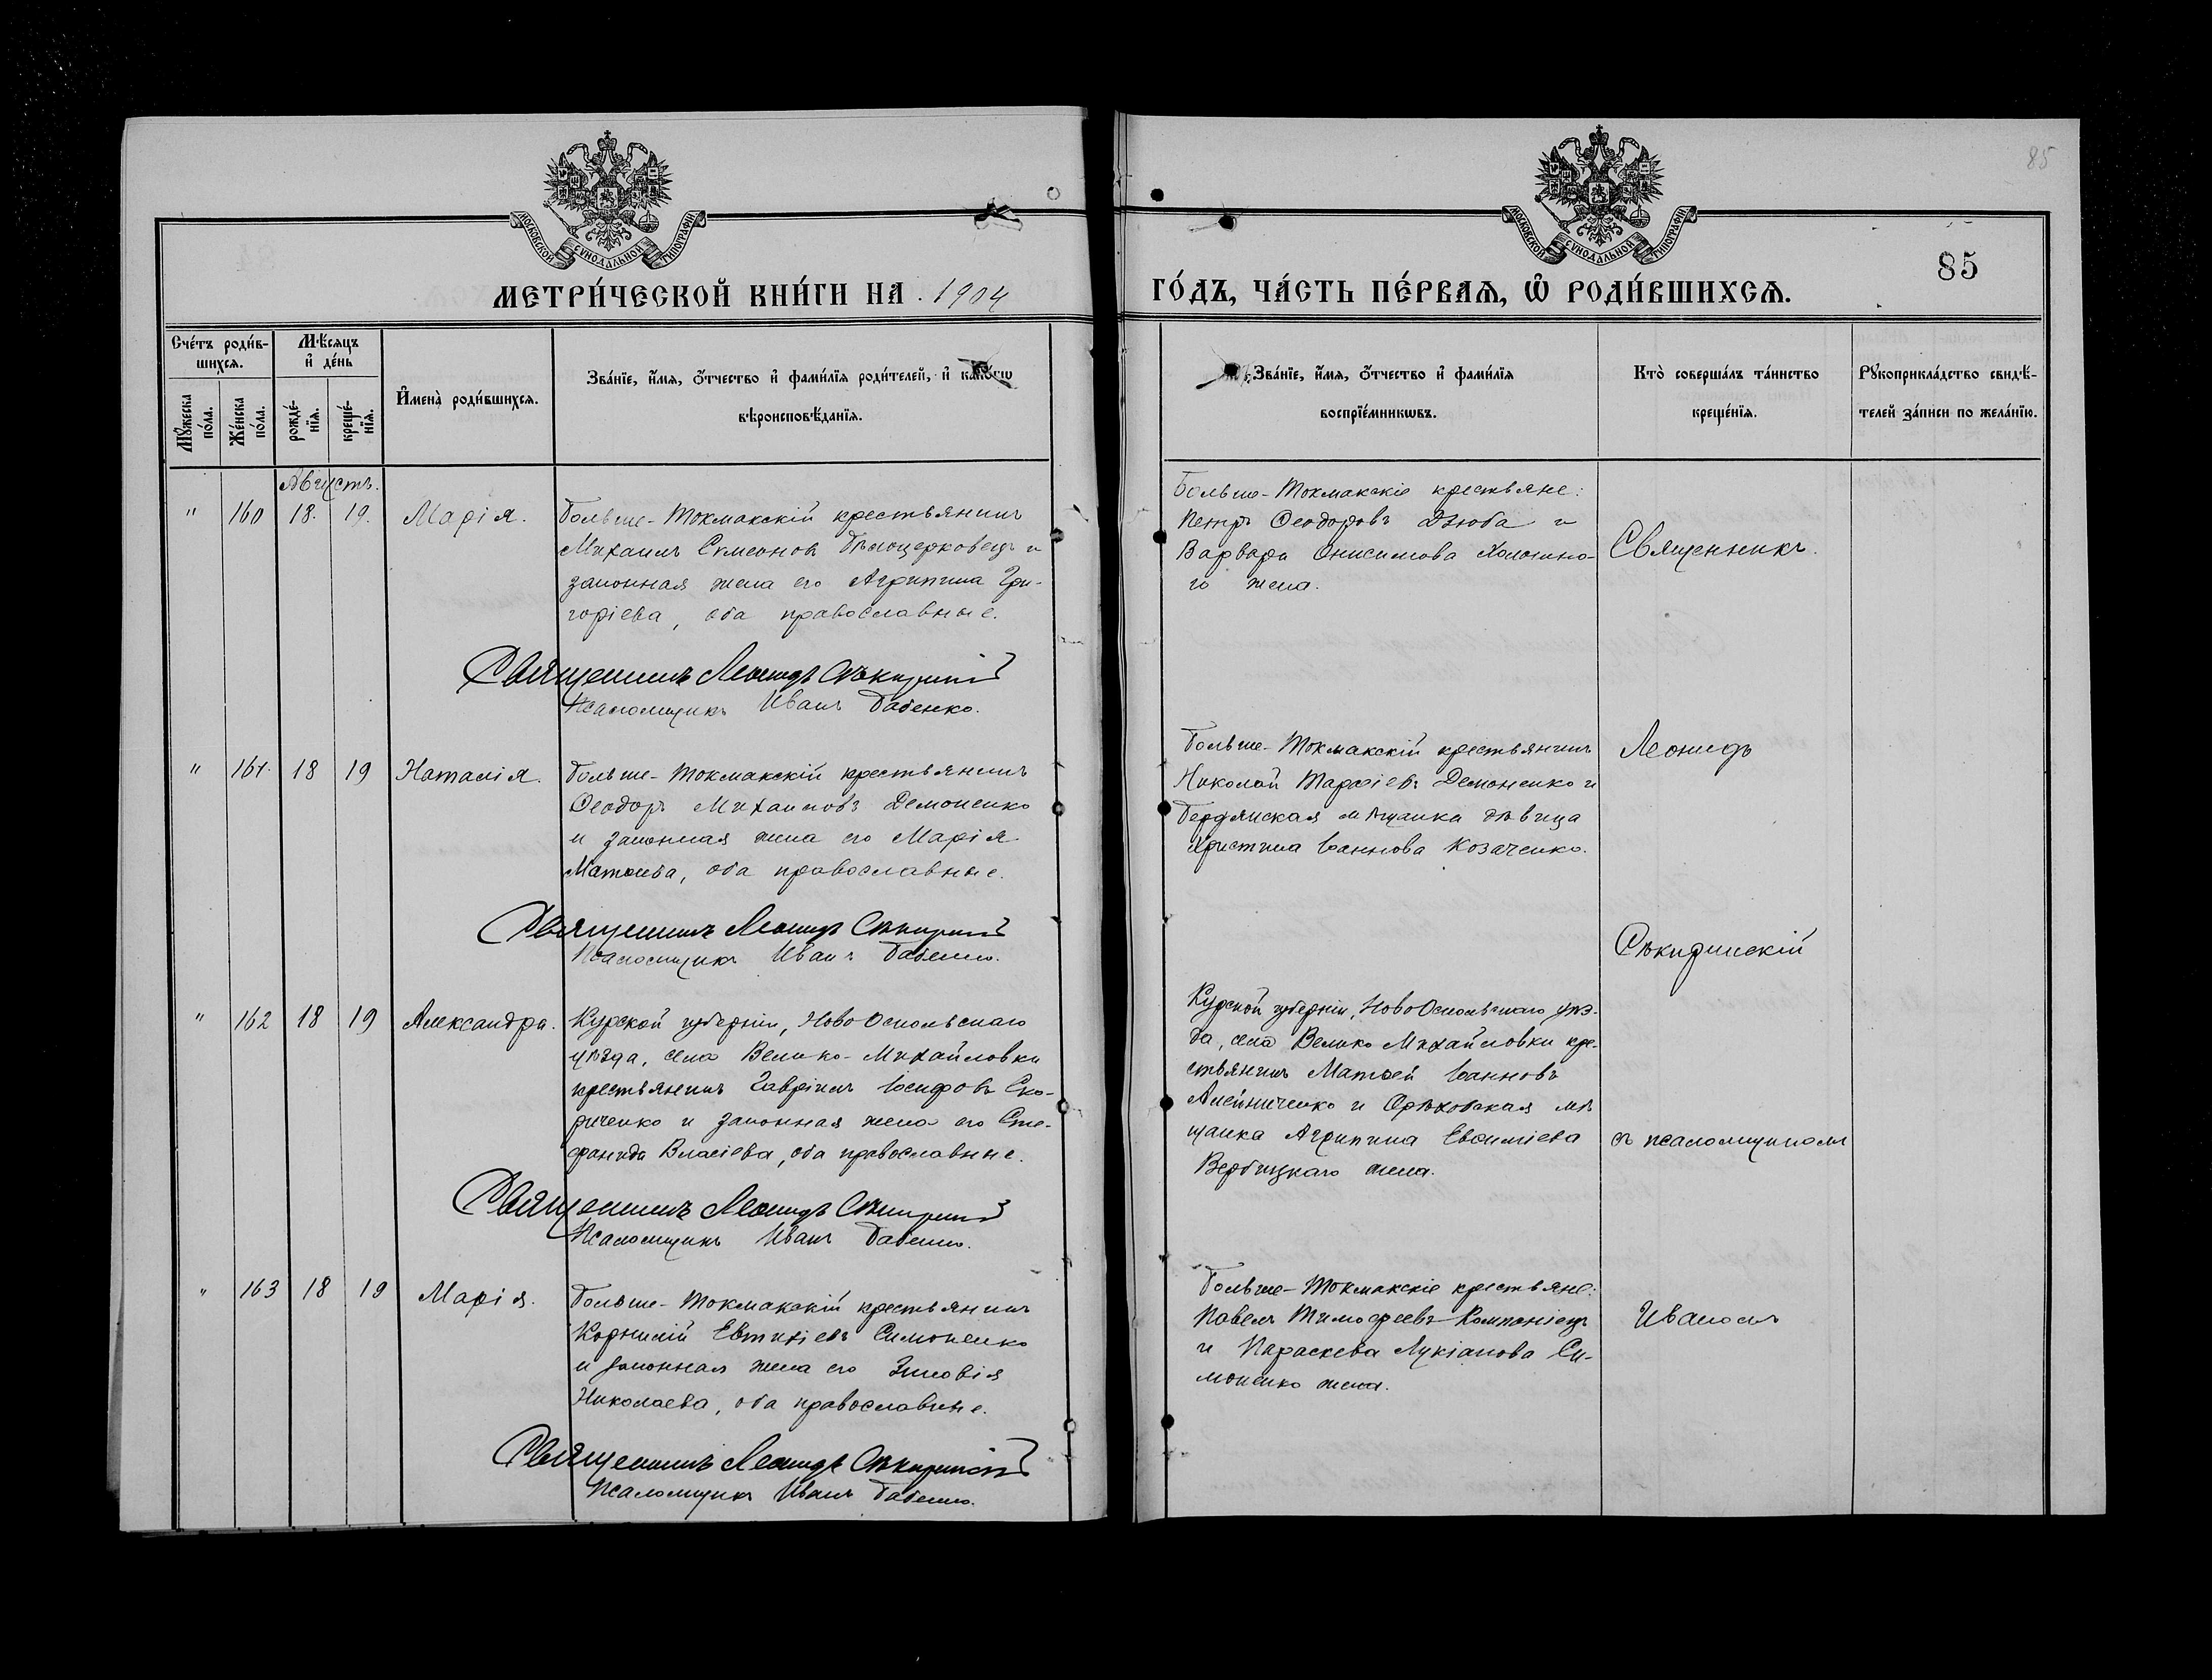 85
МОСКОВСКОЙ СѴНОДАЛЬНОЙ ТИПОГРАФІИ
МОСКОВСКОЙ СѴНОДАЛЬНОЙ ТИПОГРАФІИ
85
МЕТРИ́ЧЕСКОЙ КНИ́ГИ НА 1904
ГО́ДЪ, ЧА́СТЬ ПЕ́РВАѦ, Ѽ РОДИ́ВШИХСѦ.
Сче́тъ роди́в-
шихсѧ.
Мꙋ́жеска по́ла.
Же́нска по́ла.
Мѣ́сѧцъ
и҆ де́нь
рожде́-
нїѧ.
креще́-
нїѧ.
И҆мена̀ роди́вшихсѧ.
Зва́нїе, и҆́мѧ, ѻ҆́тчество и҆ фами́лїѧ роди́телей, и҆ како́гѡ
вѣроисповѣ́данїѧ.
Зва́нїе, и҆́мѧ, ѻ҆́тчество и҆ фами́лїѧ
воспрїе́мникѡвъ.
Кто̀ соверша́лъ та́инство
креще́нїѧ.
Рꙋкоприкла́дство свидѣ́-
телей за́писи по жела́нїю.
Августъ.
" 160 18. 19. Марія.
Больше-Токмакскій крестьянинъ
Михаилъ Симеоновъ Бѣлоцерковецъ и
законная жена его Агрипина Гри-
горіева, оба православные.
Священникъ Леонидъ Сѣкиринскій
Псаломщикъ Иванъ Бабенко.
Больше-Токмакскіе крестьяне:
Петръ Ѳеодоровъ Дзюба и
Варвара Онисимова
го жена.
Священникъ
" 161. 18 19 Наталія.
Больше-Токмакскій крестьянинъ
Ѳеодоръ Михаиловъ Демоненко
и законная жена его Марія
Матѳіева, оба православные.
Священникъ Леонидъ Сѣкиринскій
Псаломщикъ Иванъ Бабенко.
Больше-Токмакскій крестьянинъ
Николай Демоненко и
Бердянская мѣщанка дѣвица
Христина Іоаннова Козаченко.
Леонидъ
Сѣкиринскій
" 162 18 19 Александра.
Курской губерніи, Ново Оскольскаго
уѣзда, села Велико-Михайловки
крестьянинъ Гавріилъ Іосифовъ Ско-
риченко и законная жена его Сте-
фанида Власіева, оба православные.
Священникъ Леонидъ Сѣкиринскій
Псаломщикъ Иванъ Бабенко.
Курской губерніи, Ново Оскольскаго уѣз-
да, села Велико Михайловки кре-
стьянинъ Матѳей Іоанновъ
Алейниченко и Орѣховская мѣ
щанка Агрипина Евѳиміева
Вербицкаго жена.
съ псаломщикомъ
" 163 18 19 Марія.
Больше-Токмакскій крестьянинъ
Корнилій Евтихіевъ Симоненко
и законная жена его Зиновія
Николаева, оба православные.
Священникъ Леонидъ Сѣкиринскій
Псаломщикъ Иванъ Бабенко.
Больше-Токмакскіе крестьяне:
Павелъ Тимофеевъ Компаніецъ
и Параскева Лукіанова Си-
моненко жена.
Иваномъ